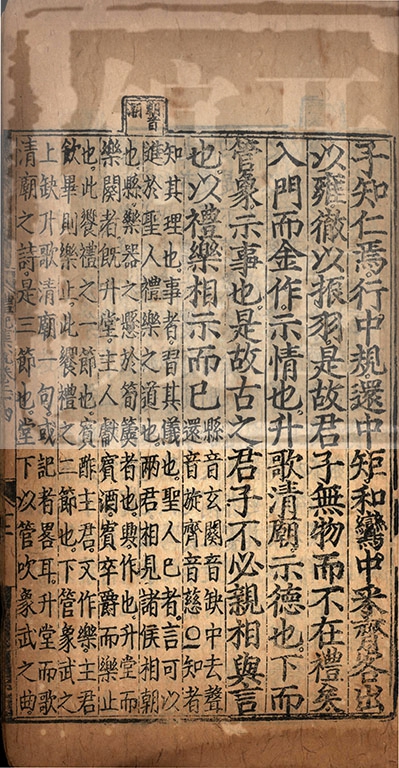 子知仁焉。行中規還中矩。和鸞中采齊。客出
以雍徹以振羽。是故君子無物而不在禮矣
入門而金作示情也。升歌清廟。示德也。下而
管象示事也。是故古之君子不必親相與言
也。以禮樂相示而已
縣音玄闋音缺中去聲
還音旋齊音慈○知者
知其理也。事者習其儀也。聖人已者言可以
進於聖人禮樂之道也。兩君相見諸侯相朝
也。縣樂器之懸於筍簴者也。興作也。升堂而
樂闋者既升堂主人獻賓酒賓卒爵而樂止
也。此饗禮之一節也。賓酢主君又作樂主君
飲畢則樂止。此饗禮之二節也。下管象武之
上缺升歌清廟一句。或記者畧耳。升堂而歌
清廟之詩是三節也。堂下以管吹象武之曲。